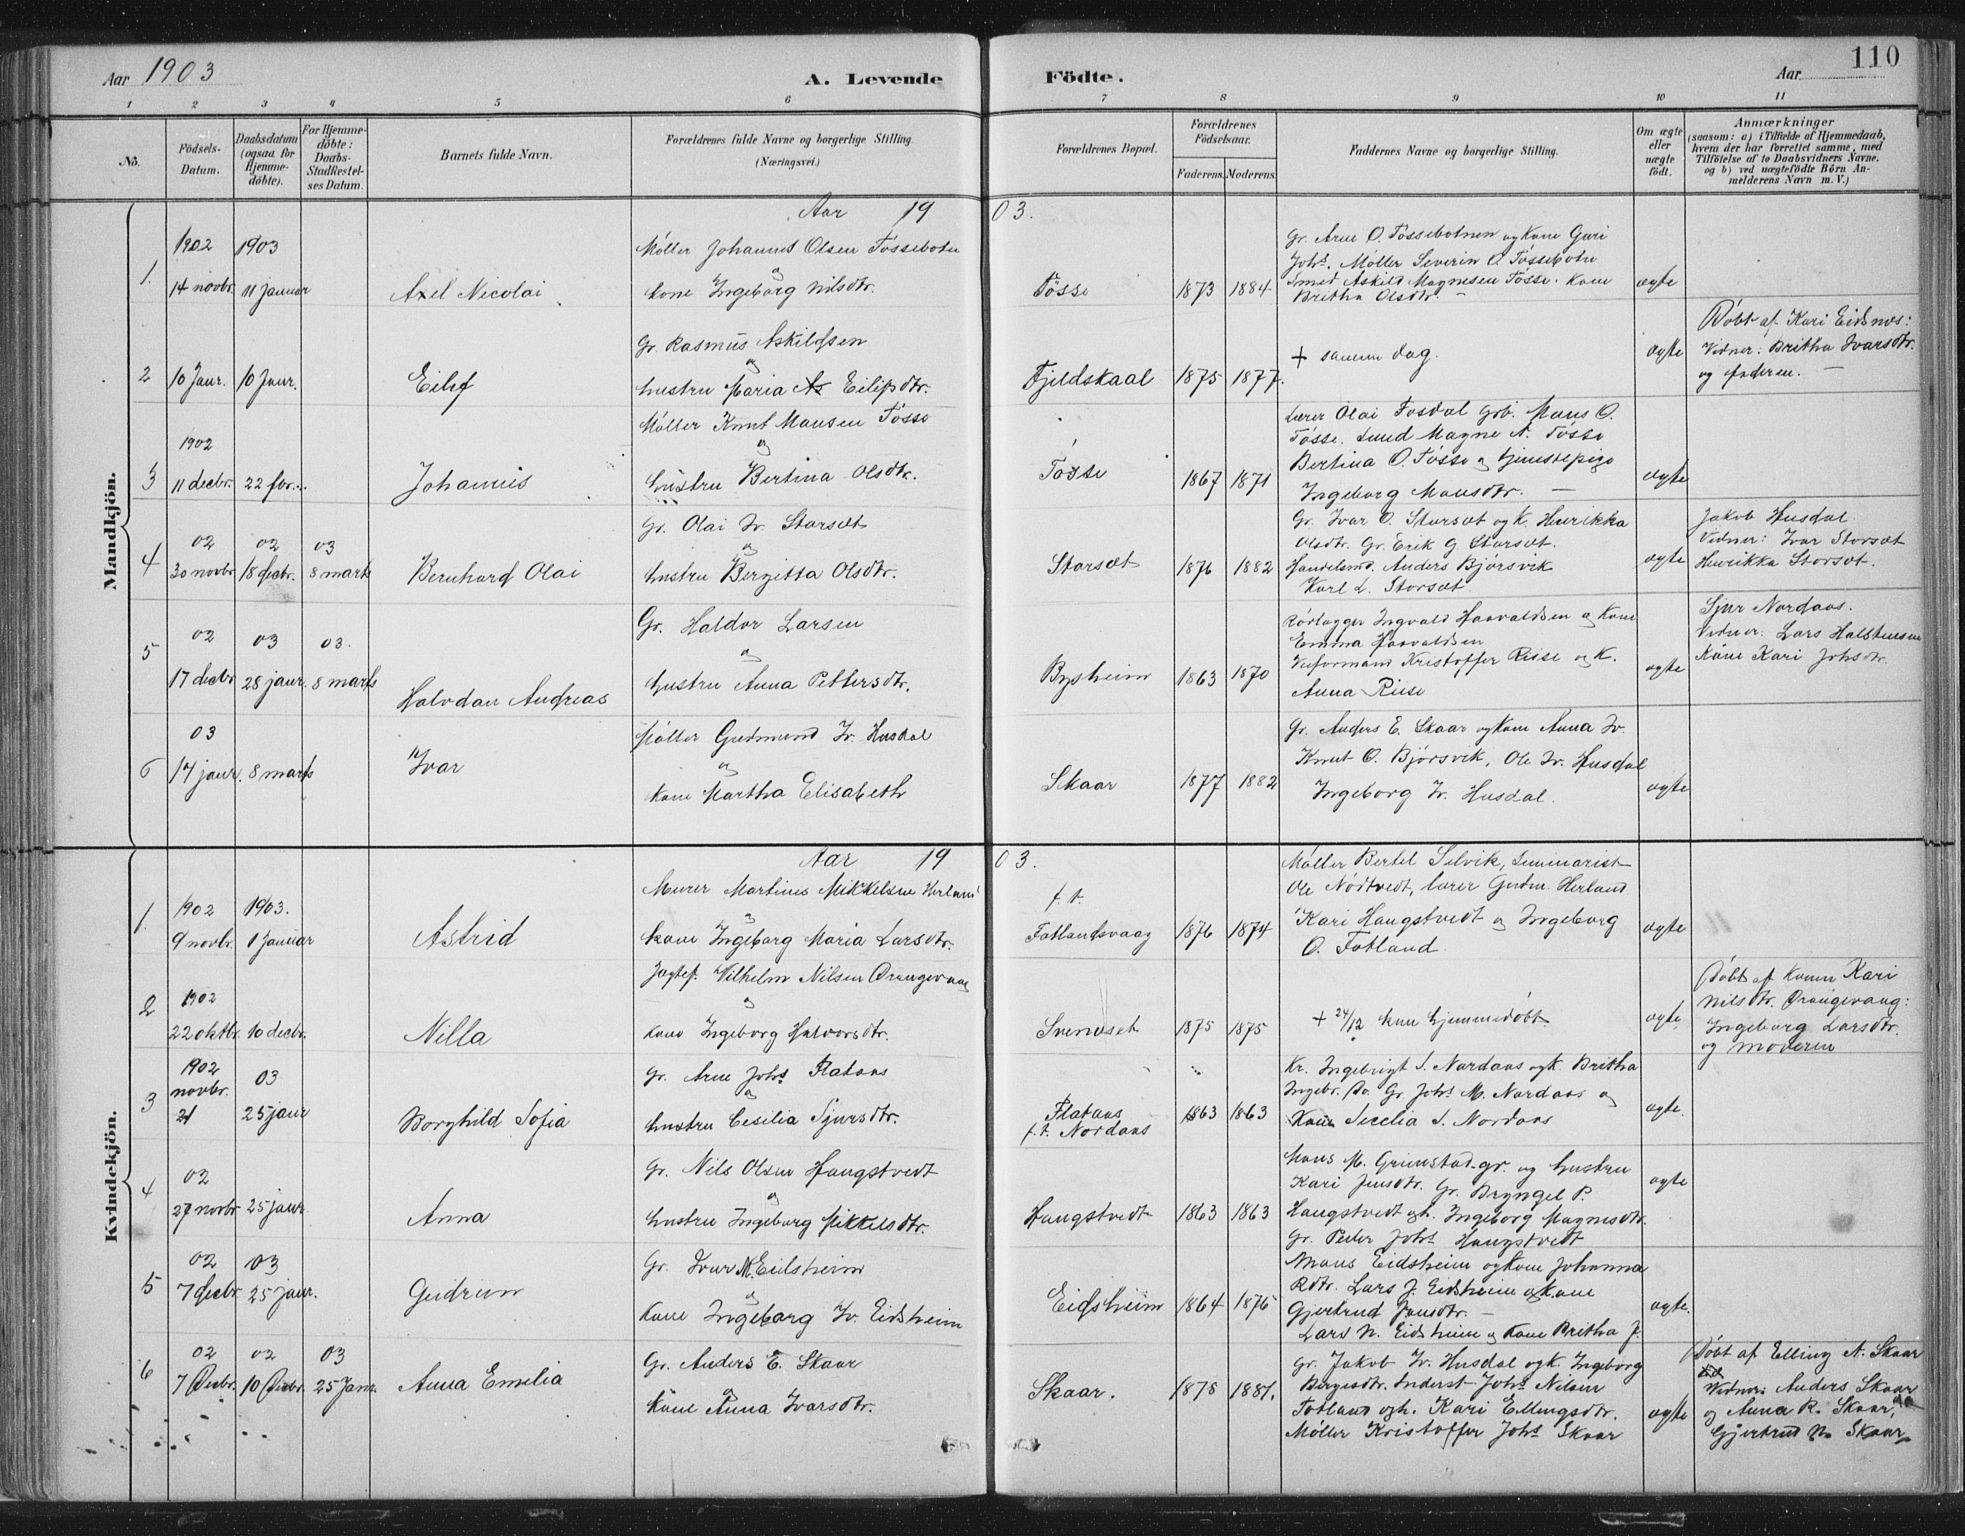 Aar 1903
A. Levende
Födte.
Aar
110
1 2 3 4 5 6 7 8 9 10 11
No.
Födsels-
Datum.
Daabsdatum
(ogsaa for
Hjemme-
döbte).
For Hjemme-
döbte:
Daabs-
Stadfæstel-
ses Datum.
Barnets fulde Navn.
Forældrenes fulde Navne og borgerlige Stilling
(Næringsvei.)
Forældrenes Bopæl.
Forældrenes
Födselsaar.
Faderens. Moderens.
Faddernes Navne og borgerlige Stilling.
Om ægte
eller
uægte
födt.
Anmærkninger
(saasom: a) i Tilfælde af Hjemmedaab,
hvem der har forrettet samme, med
Tilföielse af to Daabsvidners Navne.
og b) ved uægtefödte Börn An-
melderens Navn m. V.)
Mandkjön.
Aar 19 03.
1.
1902
14 novbr.
1903
11 januar
Axel Nicolai
Møller Johannes Olsen Tössebotn
og
kone Ingeborg Nilsdtr.
Tösse
1873 1884
Gr. Arne O. Tössebotnen og kone Guri
Johs. Møller Severin O. Tössebotn
Smed Askild Magnesen Tösse. kone
Britha Olsdtr. –
ægte
2
10 Janr.
10 Janr.
Eilif
Gr. Rasmus Askildsen
og
hustru Maria Eilifsdtr.
Fjeldskaal
1875 1877.
+ samme dag.
ægte
Döbt af Kari Eidsnes:
Vidner: Britha Ivarsdtr.
og faderen. –
3
1902
11 decbr.
22 febr.
Johannes
Møller Knut Mansen Tösse
og
hustru Bertina Olsdtr.
Tösse
1867 1871
Lærer Olai Fosdal Grb. Mons O.
Tösse. Smed Magne A. Tösse
Bertina O. Tösse og tjenestepige
Ingeborg Monsdtr. –
ægte
4
02
30 novbr
02
18 decbr.
03
8 marts
Bernhard Olai
Gr. Olai Iv. Storsæt
og
hustru Bergitta Olsdtr.
Storsæt
1876 1882
Gr. Ivar O. Storsæt og k. Henrikka
Olsdtr. Gr. Erik G. Storsæt.
Handelsmd. Anders Bjørsvik
Karl L. Storsæt.
ægte
Jakob Husdal
Vidner: Ivar Storsæt
Henrikka Storsæt.
5
02
17 decbr
03
28 janr.
03.
8 marts
Halvdan Andreas
Gr. Haldor Larsen
og
hustru Anna Pettersdtr.
Bysheim
1863 1870
Rørlægger Ingvald Haavaldsen og kone
Emma Haavaldsen
Kristoffer Riise og k.
Anna Riise
ægte
Sjur Nordaas.
Vidner: Lars Halstensen
Kone Kari Johsdtr.
6
03
17 janr.
8 marts
Ivar
Møller Gudmund Iv. Husdal
og
kone Martha Elisabeth
Skaar
1877 1882
Gr. Anders E. Skaar og kone Anna Iv.
Knut O. Bjørsvik, Ole Iv. Husdal
Ingeborg Iv. Husdal.
ægte
Kvindekjön.
Aar 19 03.
1.
1902
9 novbr.
1903.
1 Januar
Astrid
Murer Martinus Mikkelsen Herland
og
kone Ingeborg Maria Larsdtr.
f. t.
Fotlandsvaag
1876 1874
Møller Bertel Selvik, Seminarist
Ole Nödtvedt, lærer Gudm. Herland
Kari Haugstvedt og Ingeborg
O. Fotland.
ægte
2
1902
22 oktbr.
10 decbr.
Nilla
Jagtef. Vilhelm Nilsen Drangevaag
og
kone Ingeborg Halvorsdtr.
Svenöset
1875 1875
+ 24/12 kun hjemmedöbt
ægte.
Döbt af konen Kari
Nilsdtr. Drangevaag:
Ingeborg Larsdtr.
og moderen
3
1902
novbr.
21
03
25 janr
Borghild Sofia
Gr. Arne Johs. Flataas
og
hustru Cesilia Sjursdtr.
Flataas
f. t. Nordaas
1863 1863
Kr. Ingebrigt S. Nordaas og k. Britha
Ingebr. Do. Gr. Johs. M. Nordaas og
Kone Secelia S. Nordaas
ægte.
4
02
27 novbr
25 janr.
Anna
Gr. Nils Olsen Haugstvedt
og
hustru Ingeborg Mikkelsdtr.
Haugstvedt
1863 1863
Mons M. Grimstad gr. og hustru
Kari Jensdtr. Gr. Bryngel P.
Haugstvedt og h. Ingeborg Magnesdtr.
Gr. Peder Johs. Haugstvedt
ægte
5
02
7 decbr
03
25 janr.
Gudrun
Gr. Ivar M. Eidsheim
og
kone Ingeborg Iv. Eidsheim
Eidsheim
1864 1876
Mons Eidsheim og kone Johanna
Rdtr. Lars J. Eidsheim og kone
Gjertrud Jonsdtr. –
Lars N. Eidsheim og kone Britha J.
ægte.
6
02
7 Decbr.
02
10 Decbr.
03
25 Janr.
Anna Emilia
Gr. Anders E. Skaar
og
kone Anna Ivarsdtr.
Skaar.
1875 1881.
Gr. Jakob Iv. Husdal og k. Ingeborg
Bergesdtr. Inderst Johs. Nilsen
Fotland og h. Kari Ellingsdtr.
Møller Kristoffer Johs. Skaar
ægte
Döbt af Elling A. Skaar
Vidner: Anders Skaar
og Anna R. Skaar,
Gjertrud N. Skaar